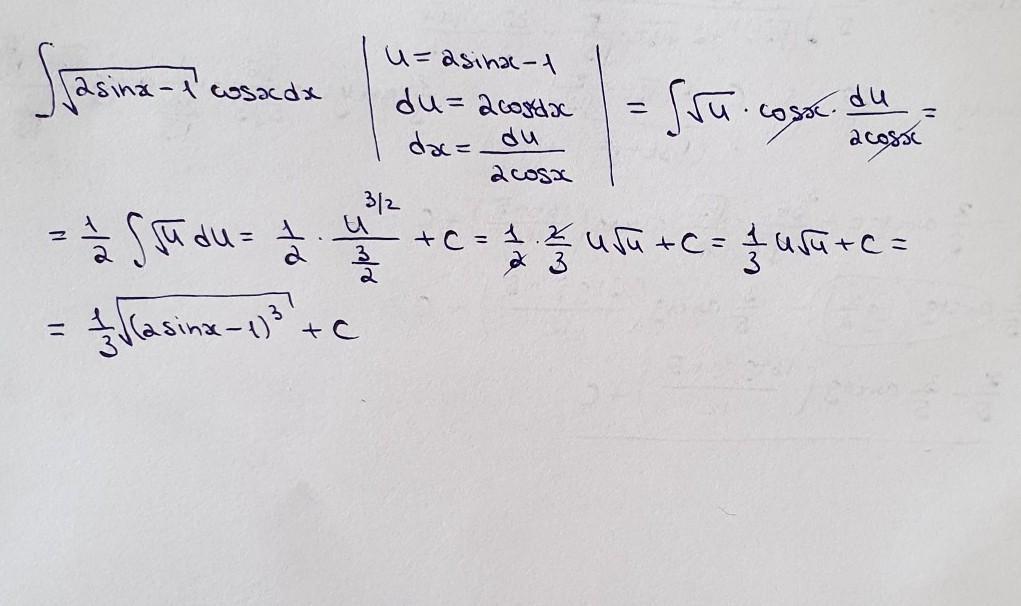 ∫√(2sinx-1) cosxdx | u = 2sinx-1 du = 2cosxdx dx = du/(2cosx) | = ∫√u · cosx · du/(2cosx) =
= 1/2 ∫√u du = 1/2 · u^(3/2)/(3/2) + C = 1/2 · 2/3 u√u + C = 1/3 u√u + C =
= 1/3 √((2sinx-1)^3) + C